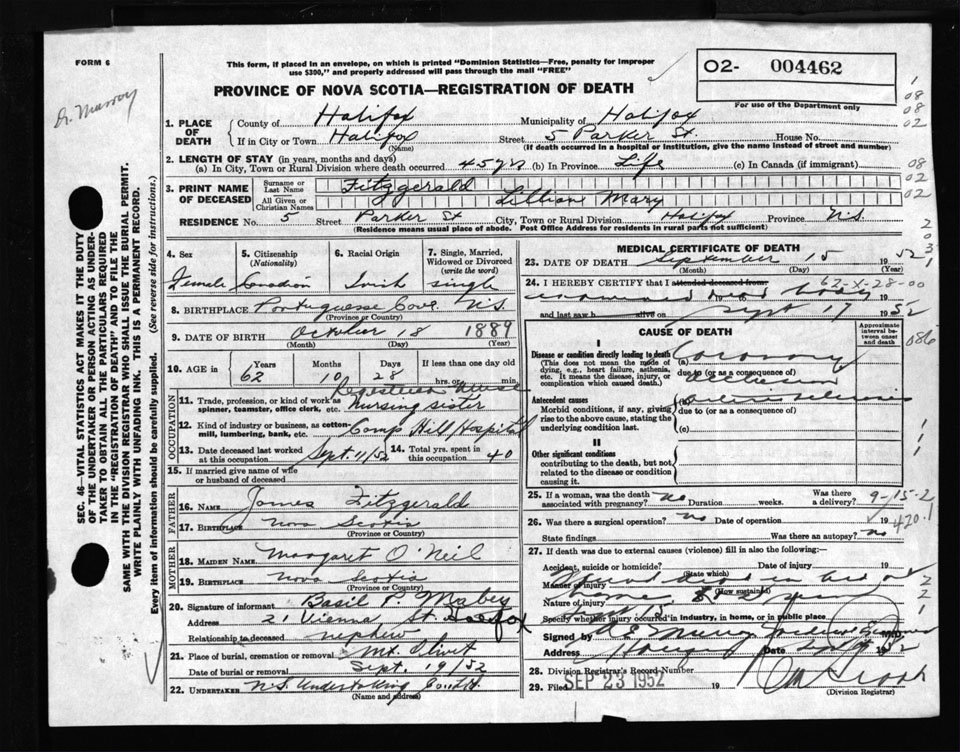 FORM 6
Dr. Murray
This form, if placed in an envelope, on which is printed "Dominion Statistics—Free, penalty for improper
use $300," and properly addressed will pass through the mail "FREE"
PROVINCE OF NOVA SCOTIA—REGISTRATION OF DEATH
O2- 004462
For use of the Department only
1. PLACE OF DEATH
County of Halifax Municipality of Halifax
If in City or Town Halifax Street 5 Parker St. House No.
(Name) (If death occurred in a hospital or institution, give the name instead of street and number)
2. LENGTH OF STAY (in years, months and days)
(a) In City, Town or Rural Division where death occurred 45 yrs (b) In Province Life (c) In Canada (if immigrant)
3. PRINT NAME OF DECEASED
Surname or Last Name Fitzgerald
All Given or Christian Names Lilliane Mary
RESIDENCE No. 5 Street Parker St City, Town or Rural Division Halifax Province N.S.
(Residence means usual place of abode. Post Office Address for residents in rural parts not sufficient)
4. Sex
Female
5. Citizenship (Nationality)
Canadian
6. Racial Origin
Irish
7. Single, Married, Widowed or Divorced (write the word)
single
8. BIRTHPLACE Portuguese Cove N.S.
(Province or Country)
9. DATE OF BIRTH October 18 1889
(Month) (Day) (Year)
10. AGE in Years 62 Months 10 Days 28 If less than one day old hrs. or min.
OCCUPATION
11. Trade, profession, or kind of work as spinner, teamster, office clerk, etc. Registered Nurse
nursing sister
12. Kind of industry or business, as cotton-mill, lumbering, bank, etc. Camp Hill Hospital
13. Date deceased last worked at this occupation Sept. 11/52 14. Total yrs. spent in this occupation 40
15. If married give name of wife or husband of deceased
FATHER
16. NAME James Fitzgerald
17. BIRTHPLACE Nova Scotia
(Province or Country)
MOTHER
18. MAIDEN NAME Margaret O'Neil
19. BIRTHPLACE Nova Scotia
(Province or Country)
20. Signature of informant Basil P. Mabey
Address 21 Vienna St. Halifax
Relationship to deceased nephew
21. Place of burial, cremation or removal Mt. Olivet
Date of burial or removal Sept. 19/52
22. UNDERTAKER N.S. Undertaking Co. Ltd.
(Name and address)
MEDICAL CERTIFICATE OF DEATH
23. DATE OF DEATH September 15 1952
(Month) (Day) (Year)
24. I HEREBY CERTIFY that I attended deceased from 62-X-28-00
examined dead body
and last saw h alive on Sept. 17 1952
CAUSE OF DEATH
Approximate interval between onset and death
I
Disease or condition directly leading to death
(This does not mean the mode of dying, e.g., heart failure, asthenia, etc. It means the disease, injury, or complication which caused death.)
(a) Coronary
due to (or as a consequence of)
occlusion
Antecedent causes
Morbid conditions, if any, giving rise to the above cause, stating the underlying condition last.
(b) arteriosclerosis
due to (or as a consequence of)
(c)
II
Other significant conditions
contributing to the death, but not related to the disease or condition causing it.
25. If a woman, was the death associated with pregnancy? no Duration weeks. Was there a delivery? 9-15-2
26. Was there a surgical operation? no Date of operation 19 420.1
State findings Was there an autopsy? no
27. If death was due to external causes (violence) fill in also the following:
Accident, suicide or homicide? Date of injury 19
(State which)
Manner of injury found dead in bed at
(How sustained)
Nature of injury home
Specify whether injury occurred in industry, in home, or in public place
Signed by M.D.
Address 19 52
28. Division Registrar's Record Number
29. Filed SEP 23 1952 19
(Division Registrar)
SEC. 46—VITAL STATISTICS ACT MAKES IT THE DUTY
OF THE UNDERTAKER OR PERSON ACTING AS UNDER-
TAKER TO OBTAIN ALL THE PARTICULARS REQUIRED
IN THE "REGISTRATION OF DEATH" AND TO FILE THE
SAME WITH THE DIVISION REGISTRAR WHO SHALL ISSUE THE BURIAL PERMIT.
WRITE PLAINLY WITH UNFADING INK. THIS IS A PERMANENT RECORD.
Every item of information should be carefully supplied. (See reverse side for instructions.)
1
08
08
02
08
02
02
2
0
3
1
086
1
1
1
2
2
1